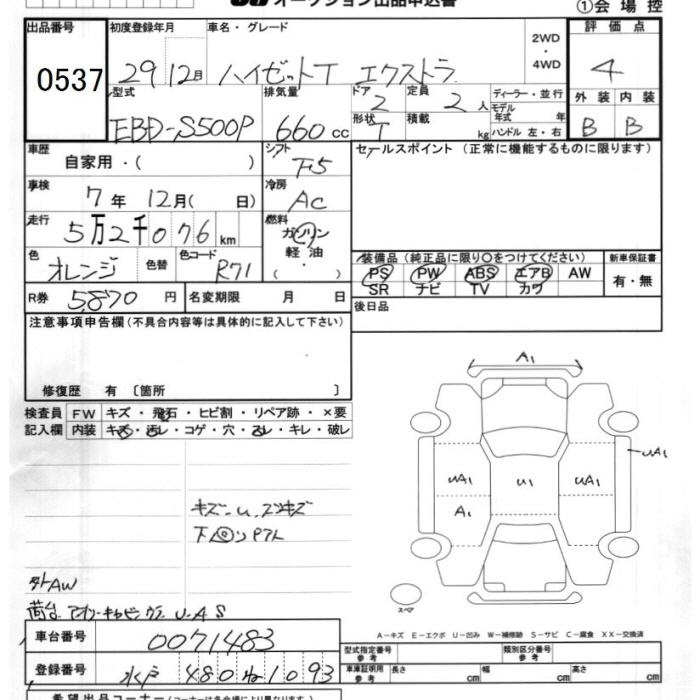 オークション出品申込書
①会場控
出品番号
0537
初度登録年月
29 12月
車名・グレード
ハイゼットT エクストラ
2WD
・
4WD
評価点
4
型式
EBD-S500P
排気量
660 cc
ドア
2
形状
T
定員
2 人
積載
kg
ディーラー・並行
モデル年式 年
ハンドル 左・右
外装 内装
B B
車歴
自家用・( )
シフト
F5
セールスポイント (正常に機能するものに限ります)
車検
7年 12月( 日)
冷房
AC
走行
5万2千076 km
燃料
ガソリン
軽油
・
( )
色
オレンジ
色替
色コード
R71
装備品 (純正品に限り○をつけてください)
PS PW ABS エアB AW
SR ナビ TV カワ
新車保証書
有・無
R券 5870 円
名変期限 月 日
後日品
注意事項申告欄 (不具合内容等は具体的に記入して下さい)
修復歴 有 〔箇所 〕
検査員記入欄
FW キズ・飛石・ヒビ割・リペア跡・×要
内装 キズ・汚レ・コゲ・穴・スレ・キレ・破レ
A1
uA1
uA1 u1 uA1
A1
スペア
外AW
U A S
A-キズ E-エクボ U-凹み W-補修跡 S-サビ C-腐食 XX-交換済
車台番号
0071483
登録番号
水戸 480 ね 1093
型式指定番号
参考
類別区分番号
参考
車庫証明用
参考
長さ cm
幅 cm
高さ cm
希望出品コーナー (コーナーは各会場により異なります)